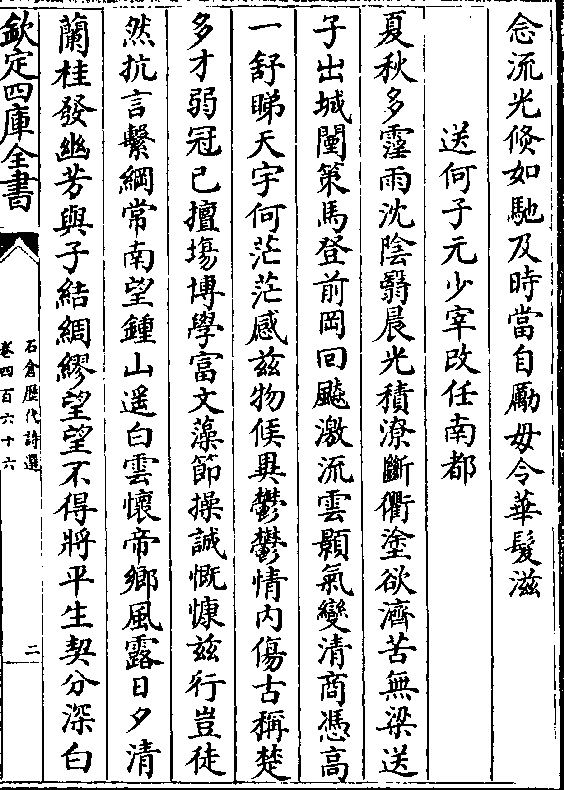 念流光倐如馳及時當自勵毋令華髮滋
送何子元少宰改任南都
夏秋多霪雨沈陰翳晨光積潦斷衢塗欲濟苦無梁送
子出城闉策馬登前岡回飈激流雲顥氣變清商憑高
一舒睇天宇何茫茫感兹物候異鬱鬱情内傷古稱楚
多才弱冠已擅塲博學富文藻節操誠慨慷兹行豈徒
然抗言繫綱常南望鍾山遥白雲懷帝鄉風露日夕清
蘭桂發幽芳與子結綢繆望望不得將平生契分深白
欽定四庫全書
石倉歴代詩選
卷四百六十六
二